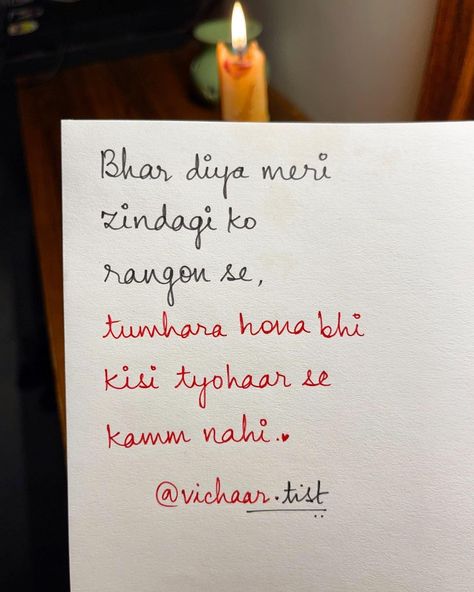 Bhar diya meri
zindagi ko
rangon se,
tumhara hona bhi
kisi tyohaar se
kamm nahi.♥
@vichaar.tist